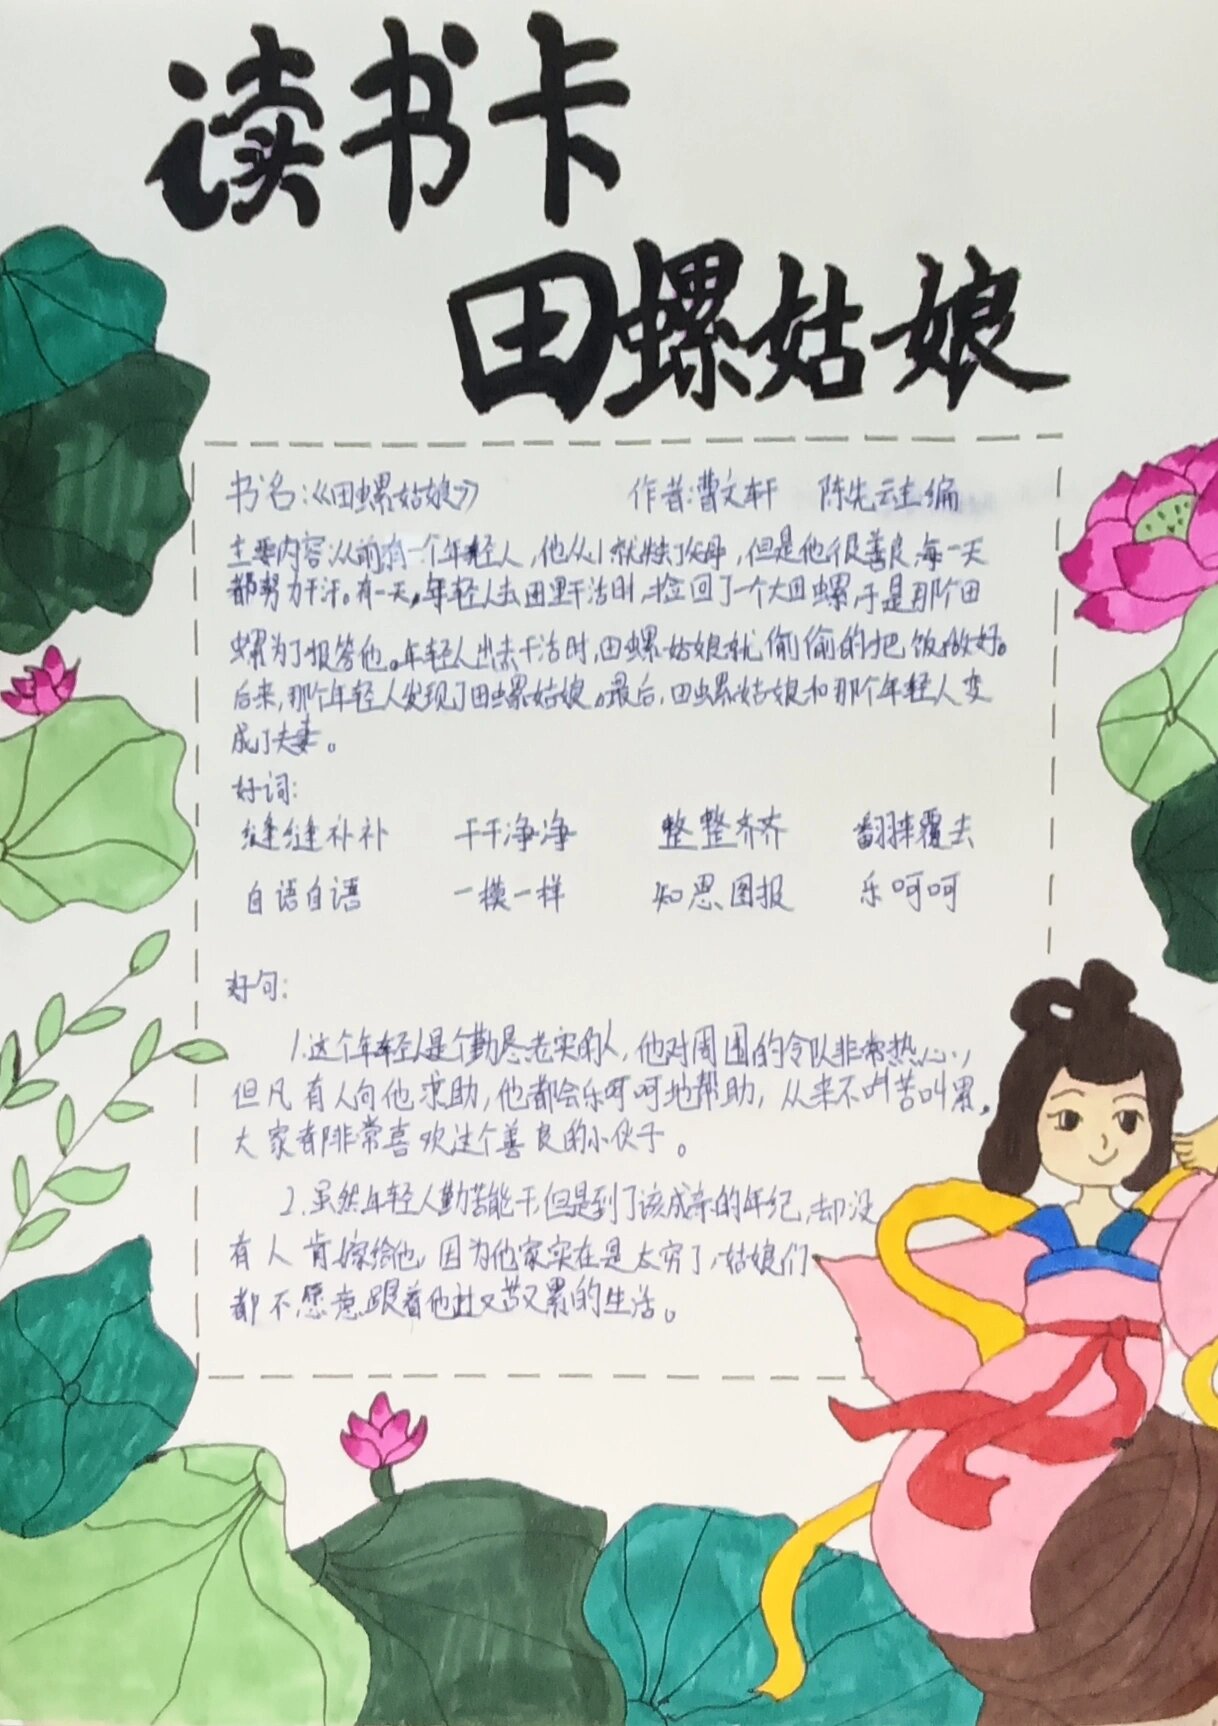 读书卡
田螺姑娘
书名:《田螺姑娘》 作者:曹文轩 陈先云主编
主要内容:从前有一个年轻人,他从小就失了父母,但是他很善良,每一天
都努力干汗。有一天,年轻人去田里干活时,捡回了一个大田螺,于是那个田
螺为了报答他。年轻人出去干活时,田螺姑娘就偷偷的把饭做好。
后来,那个年轻人发现了田螺姑娘。最后,田螺姑娘和那个年轻人变
成了夫妻。
好词:
缝缝补补 干干净净 整整齐齐 翻来覆去
自语自语 一模一样 知恩图报 乐呵呵
好句:
1.这个年轻人是个勤恳老实的人,他对周围的令队非常热心,
但凡有人向他求助,他都会乐呵呵地帮助,从来不叫苦叫累,
大家都非常喜欢这个善良的小伙子。
2.虽然年轻人勤苦能干,但是到了该成亲的年纪,却没
有人肯嫁给他,因为他家实在是太穷了,姑娘们
都不愿意跟着他过又苦又累的生活。